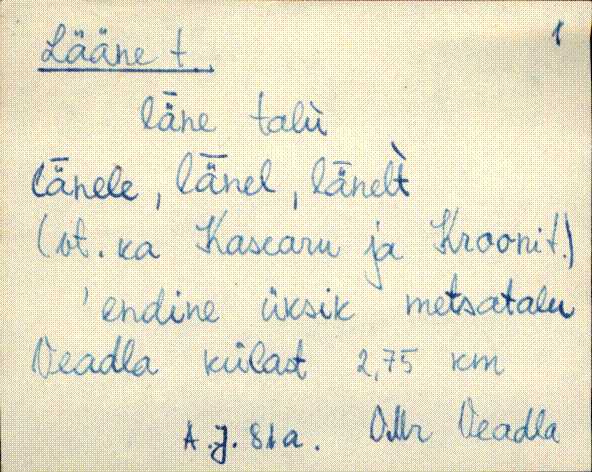 1
Lääne t.
lǟne talù
lǟnele, lǟnel, lǟnelt̀
(vt. ka Kasearu ja Kroonit.)
'endine üksik metsatalu
Veadla külast 2,75 km
A.J. 81a. VMr Veadla